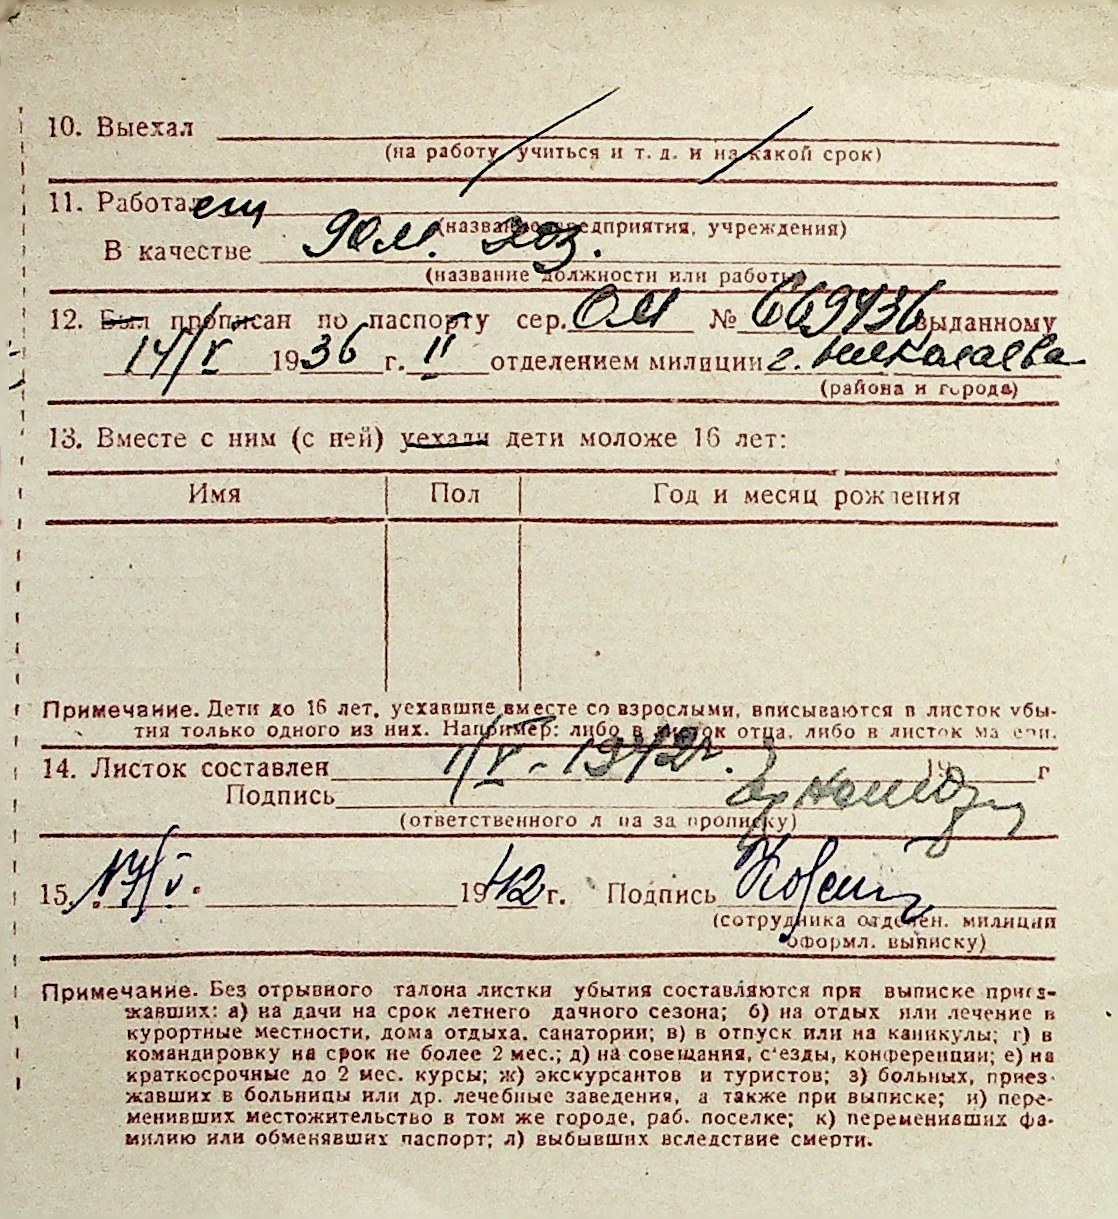 10. Выехал
(на работу, учиться и т. д. и на какой срок)
11. Работает
(название предприятия, учреждения)
В качестве дом. хоз.
(название должности или работы)
12. Был прописан по паспорту сер. ОМ № 669436 выданному
14/V 1936 г. II отделением милиции г. Николаева
(района и города)
13. Вместе с ним (с ней) уехали дети моложе 16 лет:
Имя Пол Год и месяц рождения
Примечание. Дети до 16 лет, уехавшие вместе со взрослыми, вписываются в листок убы-
тия только одного из них. Например: либо в листок отца, либо в листок матери.
14. Листок составлен 1/V - 1942г. 19 г
Подпись
(ответственного лица за прописку)
15. 1942 г. Подпись
(сотрудника отделен. милиции
оформл. выписку)
Примечание. Без отрывного талона листки убытия составляются при выписке приез-
жавших: а) на дачи на срок летнего дачного сезона; б) на отдых или лечение в
курортные местности, дома отдыха, санатории; в) в отпуск или на каникулы; г) в
командировку на срок не более 2 мес.; д) на совещания, с'езды, конференции; е) на
краткосрочные до 2 мес. курсы; ж) экскурсантов и туристов; з) больных, приез-
жавших в больницы или др. лечебные заведения, а также при выписке; и) пере-
менивших местожительство в том же городе, раб. поселке; к) переменивших фа-
милию или обменявших паспорт; л) выбывших вследствие смерти.